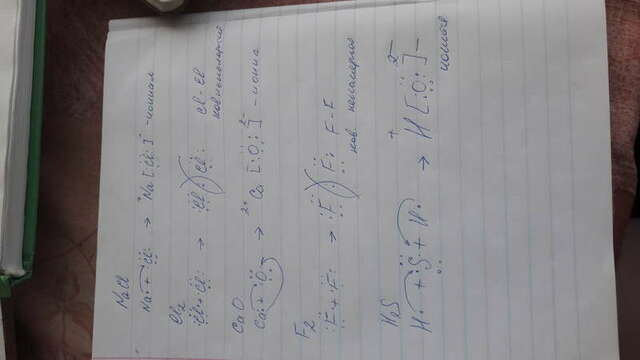 NaCl
Na· + ·Cl: → ⁺Na [:Cl:]⁻ - ионная
Cl₂
:Cl· + ·Cl: → :Cl : Cl: Cl-Cl
ков неполярная
CaO
Ca: + ·O: → ²⁺Ca [:O:]²⁻ - ионная
F₂
:F· + ·F: → :F : F: F-F
ков. неполярная
H₂S
H· + ·S· + H· → H⁺ [:O:]²⁻ -
ионная